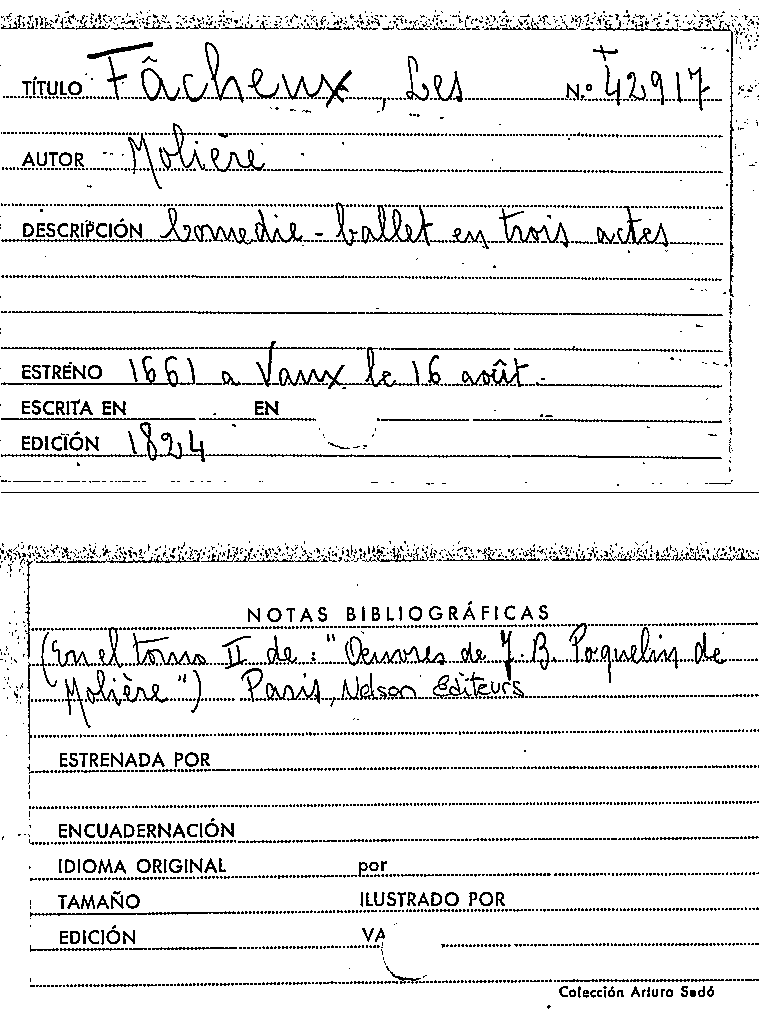 TÍTULO Fâcheux, Les N.º 42917
AUTOR Molière
DESCRIPCIÓN Comedie - ballet en trois actes
ESTRENO 1661 a Vaux le 16 août.
ESCRITA EN EN
EDICIÓN 1824
NOTAS BIBLIOGRÁFICAS
(En el tomo II de: "Oeuvres de J. B. Poquelin de
Molière") Paris, Nelson Editeurs
ESTRENADA POR
ENCUADERNACIÓN
IDIOMA ORIGINAL por
TAMAÑO ILUSTRADO POR
EDICIÓN VA
Colección Arturo Sedó